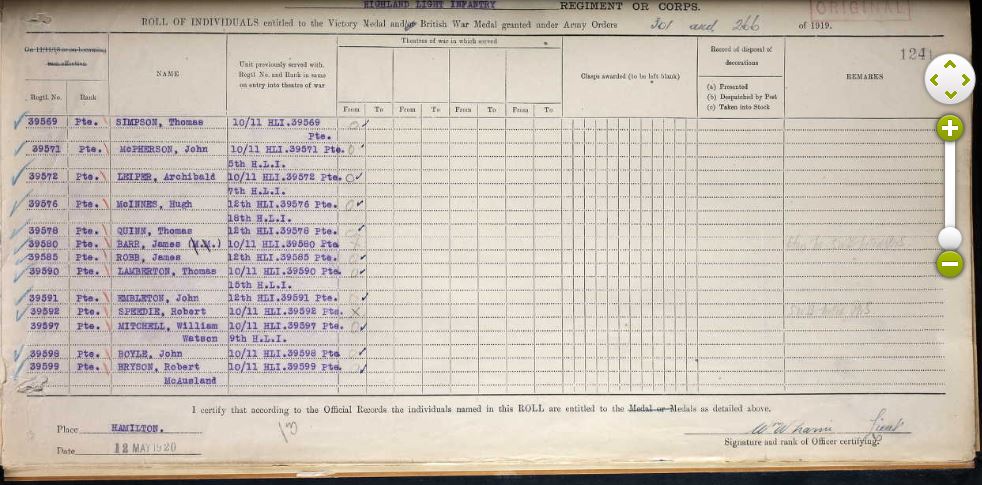 HIGHLAND LIGHT INFANTRY REGIMENT OR CORPS.
ORIGINAL
ROLL OF INDIVIDUALS entitled to the Victory Medal and/or British War Medal granted under Army Orders 301 and 266 of 1919.
1241
On 11/11/18 or on becoming
non-effective
Theatres of war in which served
Regtl. No. Rank
NAME
Unit previously served with.
Regtl No. and Rank in same
on entry into theatre of war
From To From To From To From To From To
Clasps awarded (to be left blank)
Record of disposal of
decorations
(a) Presented
(b) Despatched by Post
(c) Taken into Stock
REMARKS
39569 Pte. SIMPSON, Thomas 10/11 HLI.39569
Pte.
39571 Pte. McPHERSON, John 10/11 HLI.39571 Pte.
5th H.L.I.
39572 Pte. LEIPER, Archibald 10/11 HLI.39572 Pte.
7th H.L.I.
39576 Pte. McINNES, Hugh 12th HLI.39576 Pte.
18th H.L.I.
39578 Pte. QUINN, Thomas 12th HLI.39578 Pte.
39580 Pte. BARR, James (M.M.) 10/11 HLI.39580 Pte
39585 Pte. ROBB, James 12th HLI.39585 Pte.
39590 Pte. LAMBERTON, Thomas 10/11 HLI.39590 Pte.
15th H.L.I.
39591 Pte. EMBLETON, John 12th HLI.39591 Pte.
39592 Pte. SPEEDIE, Robert 10/11 HLI.39592 Pte.
39597 Pte. MITCHELL, William 10/11 HLI.39597 Pte.
Watson 9th H.L.I.
39598 Pte. BOYLE, John 10/11 HLI.39598 Pte
39599 Pte. BRYSON, Robert 10/11 HLI.39599 Pte.
McAusland
I certify that according to the Official Records the individuals named in this ROLL are entitled to the Medal or Medals as detailed above.
Place HAMILTON.
13
Lieut
Signature and rank of Officer certifying.
Date 12 MAY 1920